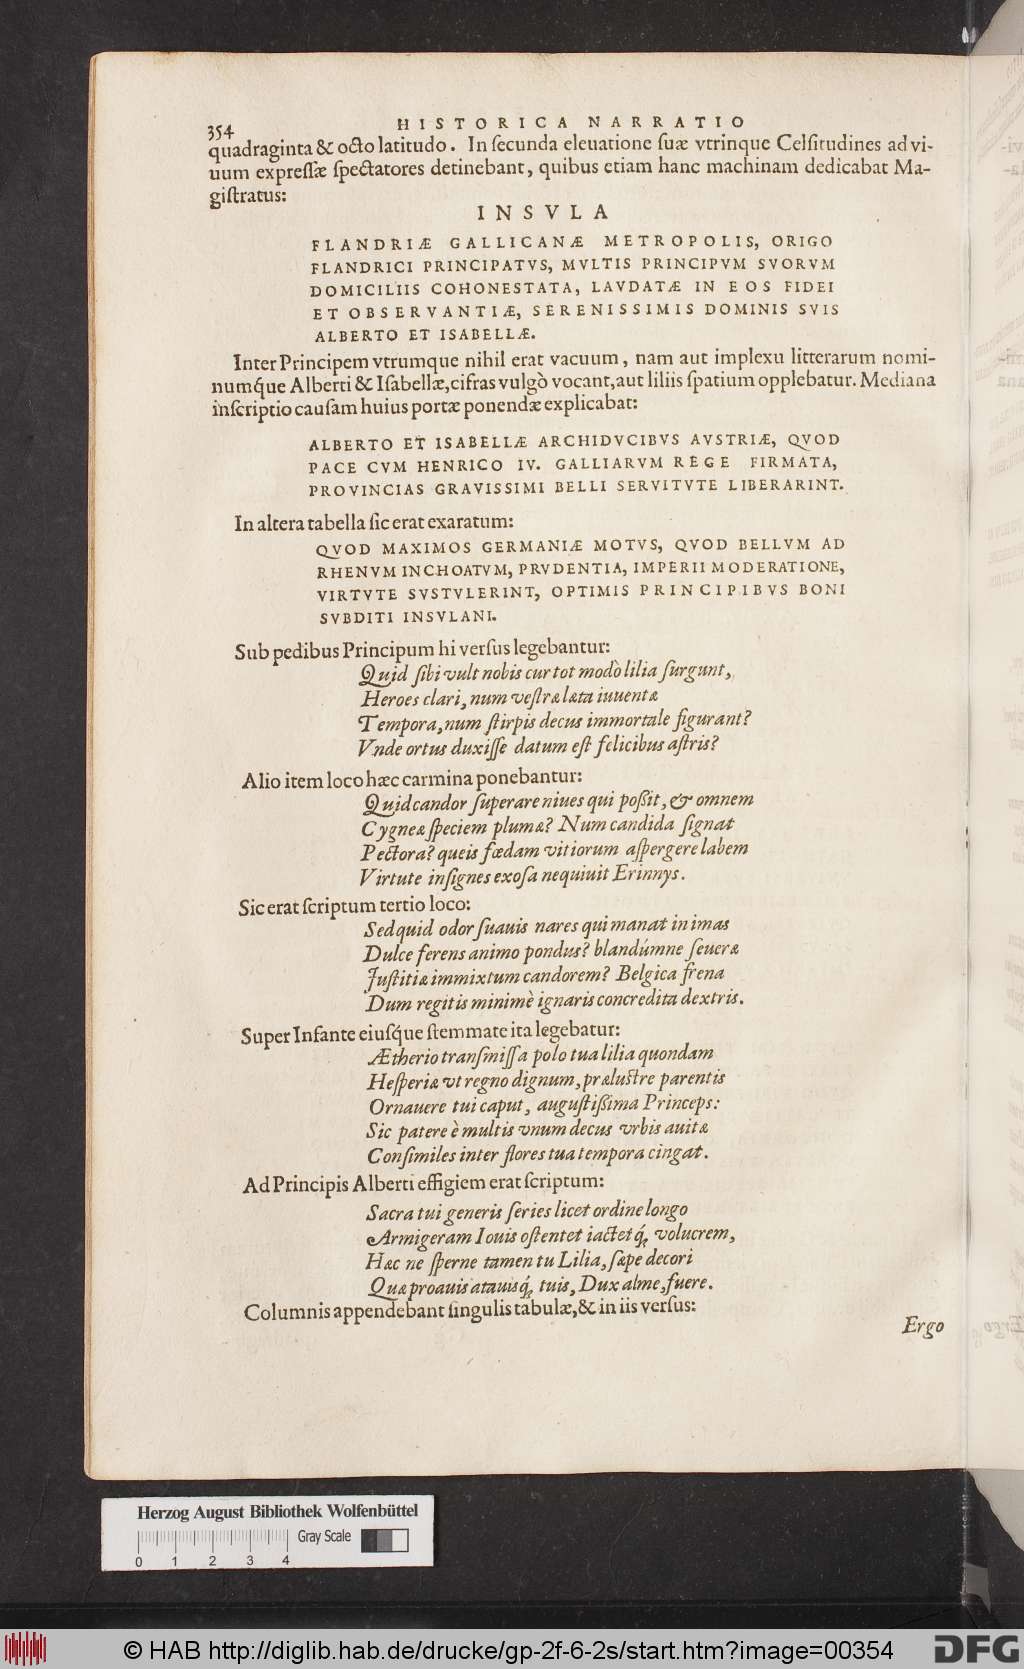 354
HISTORICA NARRATIO
quadraginta & octo latitudo. In ſecunda eleuatione ſuæ vtrinque Celſitudines ad vi-
uum expreſſæ ſpectatores detinebant, quibus etiam hanc machinam dedicabat Ma-
giſtratus:
INSVLA
FLANDRIÆ GALLICANÆ METROPOLIS, ORIGO
FLANDRICI PRINCIPATVS, MVLTIS PRINCIPVM SVORVM
DOMICILIIS COHONESTATA, LAVDATÆ IN EOS FIDEI
ET OBSERVANTIÆ, SERENISSIMIS DOMINIS SVIS
ALBERTO ET ISABELLÆ.
Inter Principem vtrumque nihil erat vacuum, nam aut implexu litterarum nomi-
numq́ue Alberti & Iſabellæ, cifras vulgò vocant, aut liliis ſpatium opplebatur. Mediana
inſcriptio cauſam huius portæ ponendæ explicabat:
ALBERTO ET ISABELLÆ ARCHIDVCIBVS AVSTRIÆ, QVOD
PACE CVM HENRICO IV. GALLIARVM REGE FIRMATA,
PROVINCIAS GRAVISSIMI BELLI SERVITVTE LIBERARINT.
In altera tabella ſic erat exaratum:
QVOD MAXIMOS GERMANIÆ MOTVS, QVOD BELLVM AD
RHENVM INCHOATVM, PRVDENTIA, IMPERII MODERATIONE,
VIRTVTE SVSTVLERINT, OPTIMIS PRINCIPIBVS BONI
SVBDITI INSVLANI.
Sub pedibus Principum hi verſus legebantur:
Quid ſibi vult nobis cur tot modò lilia ſurgunt,
Heroes clari, num veſtræ læta iuuentæ
Tempora, num ſtirpis decus immortale figurant?
Vnde ortus duxiſſe datum eſt felicibus aſtris?
Alio item loco hæc carmina ponebantur:
Quid candor ſuperare niues qui poßit, & omnem
Cygneæ ſpeciem plumæ? Num candida ſignat
Pectora? queis fœdam vitiorum aſpergere labem
Virtute inſignes exoſa nequiuit Erinnys.
Sic erat ſcriptum tertio loco:
Sed quid odor ſuauis nares qui manat in imas
Dulce ferens animo pondus? blandúmne ſeueræ
Juſtitiæ immixtum candorem? Belgica frena
Dum regitis minimè ignaris concredita dextris.
Super Infante eiuſq́ue ſtemmate ita legebatur:
Ætherio tranſmiſſa polo tua lilia quondam
Heſperiæ vt regno dignum, præluſtre parentis
Ornauere tui caput, auguſtißima Princeps:
Sic patere è multis vnum decus vrbis auitæ
Conſimiles inter flores tua tempora cingat.
Ad Principis Alberti effigiem erat ſcriptum:
Sacra tui generis ſeries licet ordine longo
Armigeram Iouis oſtentet iactetq́; volucrem,
Hæc ne ſperne tamen tu Lilia, ſæpe decori
Quæ proauis atauisq́; tuis, Dux alme, fuere.
Columnis appendebant ſingulis tabulæ, & in iis verſus:
Ergo
Herzog August Bibliothek Wolfenbüttel
Gray Scale
0 1 2 3 4
© HAB http://diglib.hab.de/drucke/gp-2f-6-2s/start.htm?image=00354
DFG